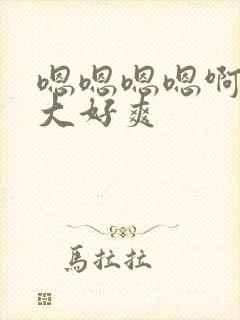 嗯嗯嗯嗯啊
大好爽
馬拉拉